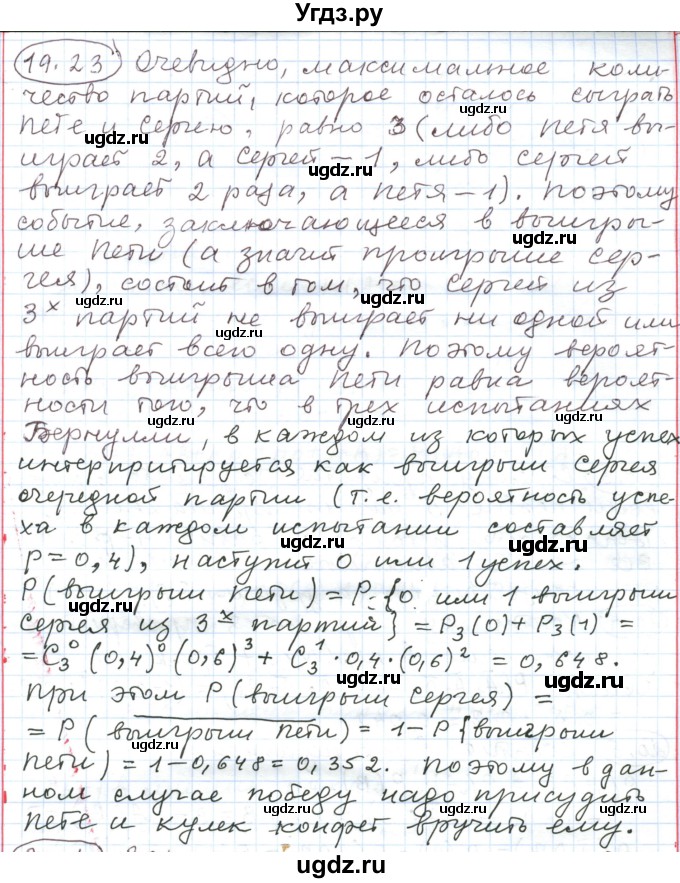 Угдз.ру
19.23) Очевидно, максимальное коли-
чество партий, которое осталось сыграть
Пете и Сергею, равно 3 (либо Петя вы-
играет 2, а Сергей – 1, либо Сергей
выиграет 2 раза, а Петя – 1). Поэтому
событие, заключающееся в выигры-
ше Пети (а значит проигрыше Сер-
гея), состоит в том, что Сергей из
3х партий не выиграет ни одной или
выиграет всего одну. Поэтому вероят-
ность выигрыша Пети равна вероят-
ности того, что в трех испытаниях
Бернулли, в каждом из которых успех
интерпритируется как выигрыш Сергея
очередной партии (т.е. вероятность успе-
ха в каждом испытании составляет
p=0,4), наступит 0 или 1 успех.
P(выигрыш Пети) = P{0 или 1 выигрыш
Сергея из 3х партий} = P₃(0)+P₃(1) =
=C₃⁰ (0,4)⁰ (0,6)³ + C₃¹ · 0,4 · (0,6)² = 0,648.
При этом P(выигрыш Сергея) =
= P(выигрыш Пети) = 1 – P{выигрыш
Пети) = 1–0,648=0,352. Поэтому в дан-
ном случае победу надо присудить
Пете и кулек конфет вручить ему.
ugdz.ru